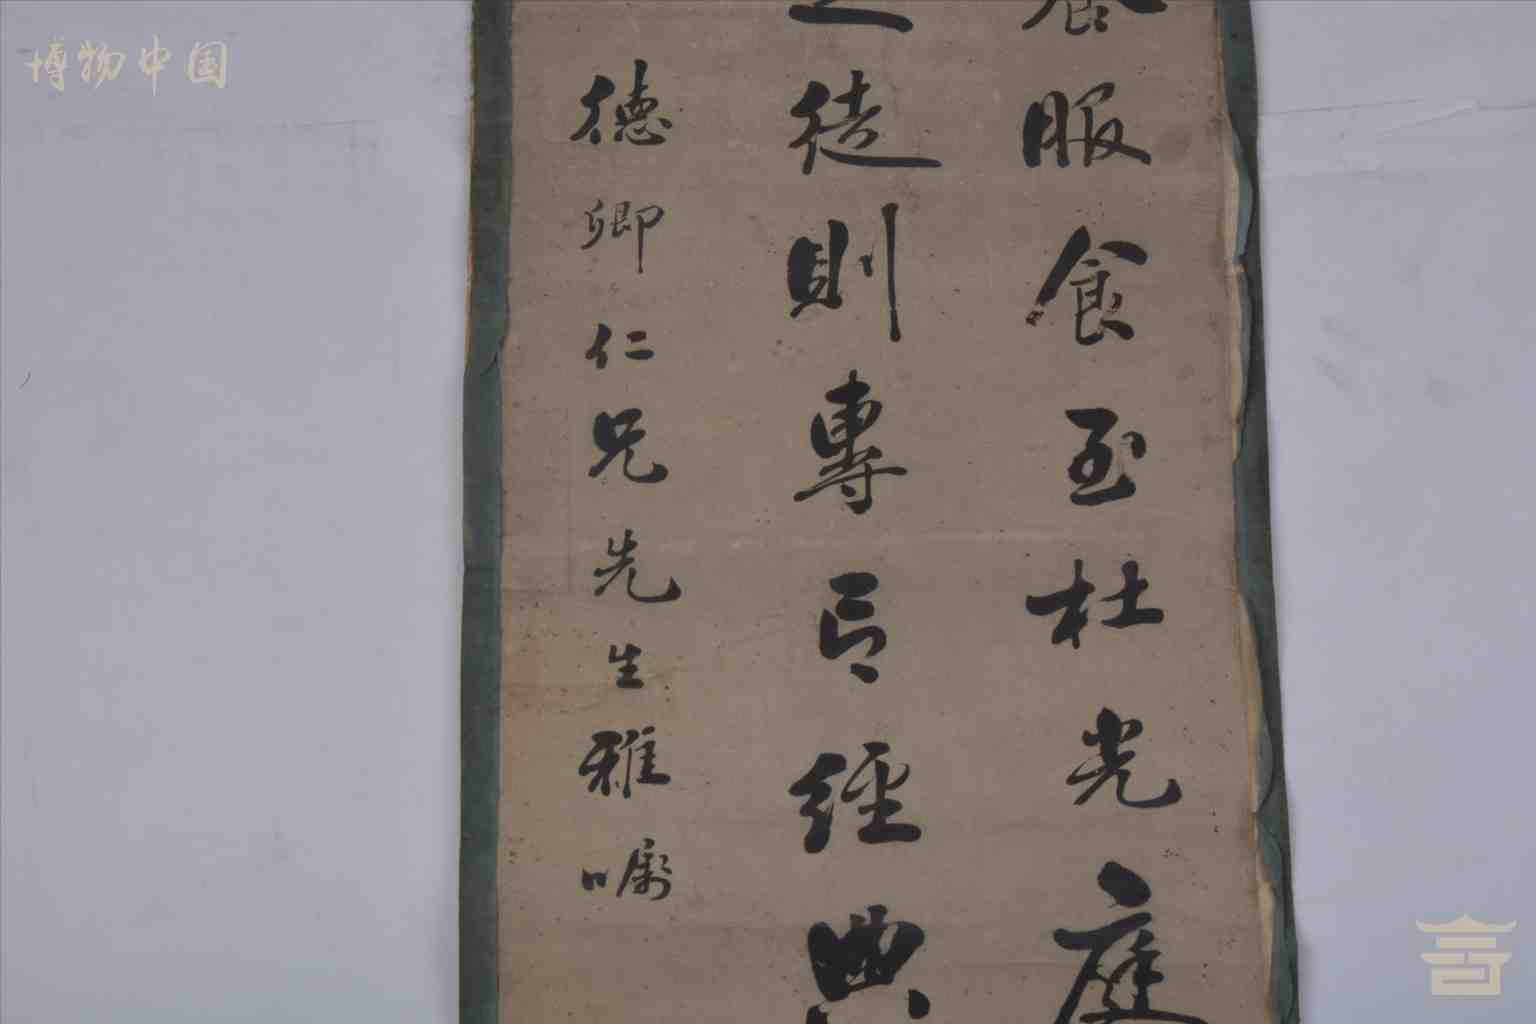 博物中国
養服食至杜光庭
之徒則專言經典
德卿仁兄先生雅嘱